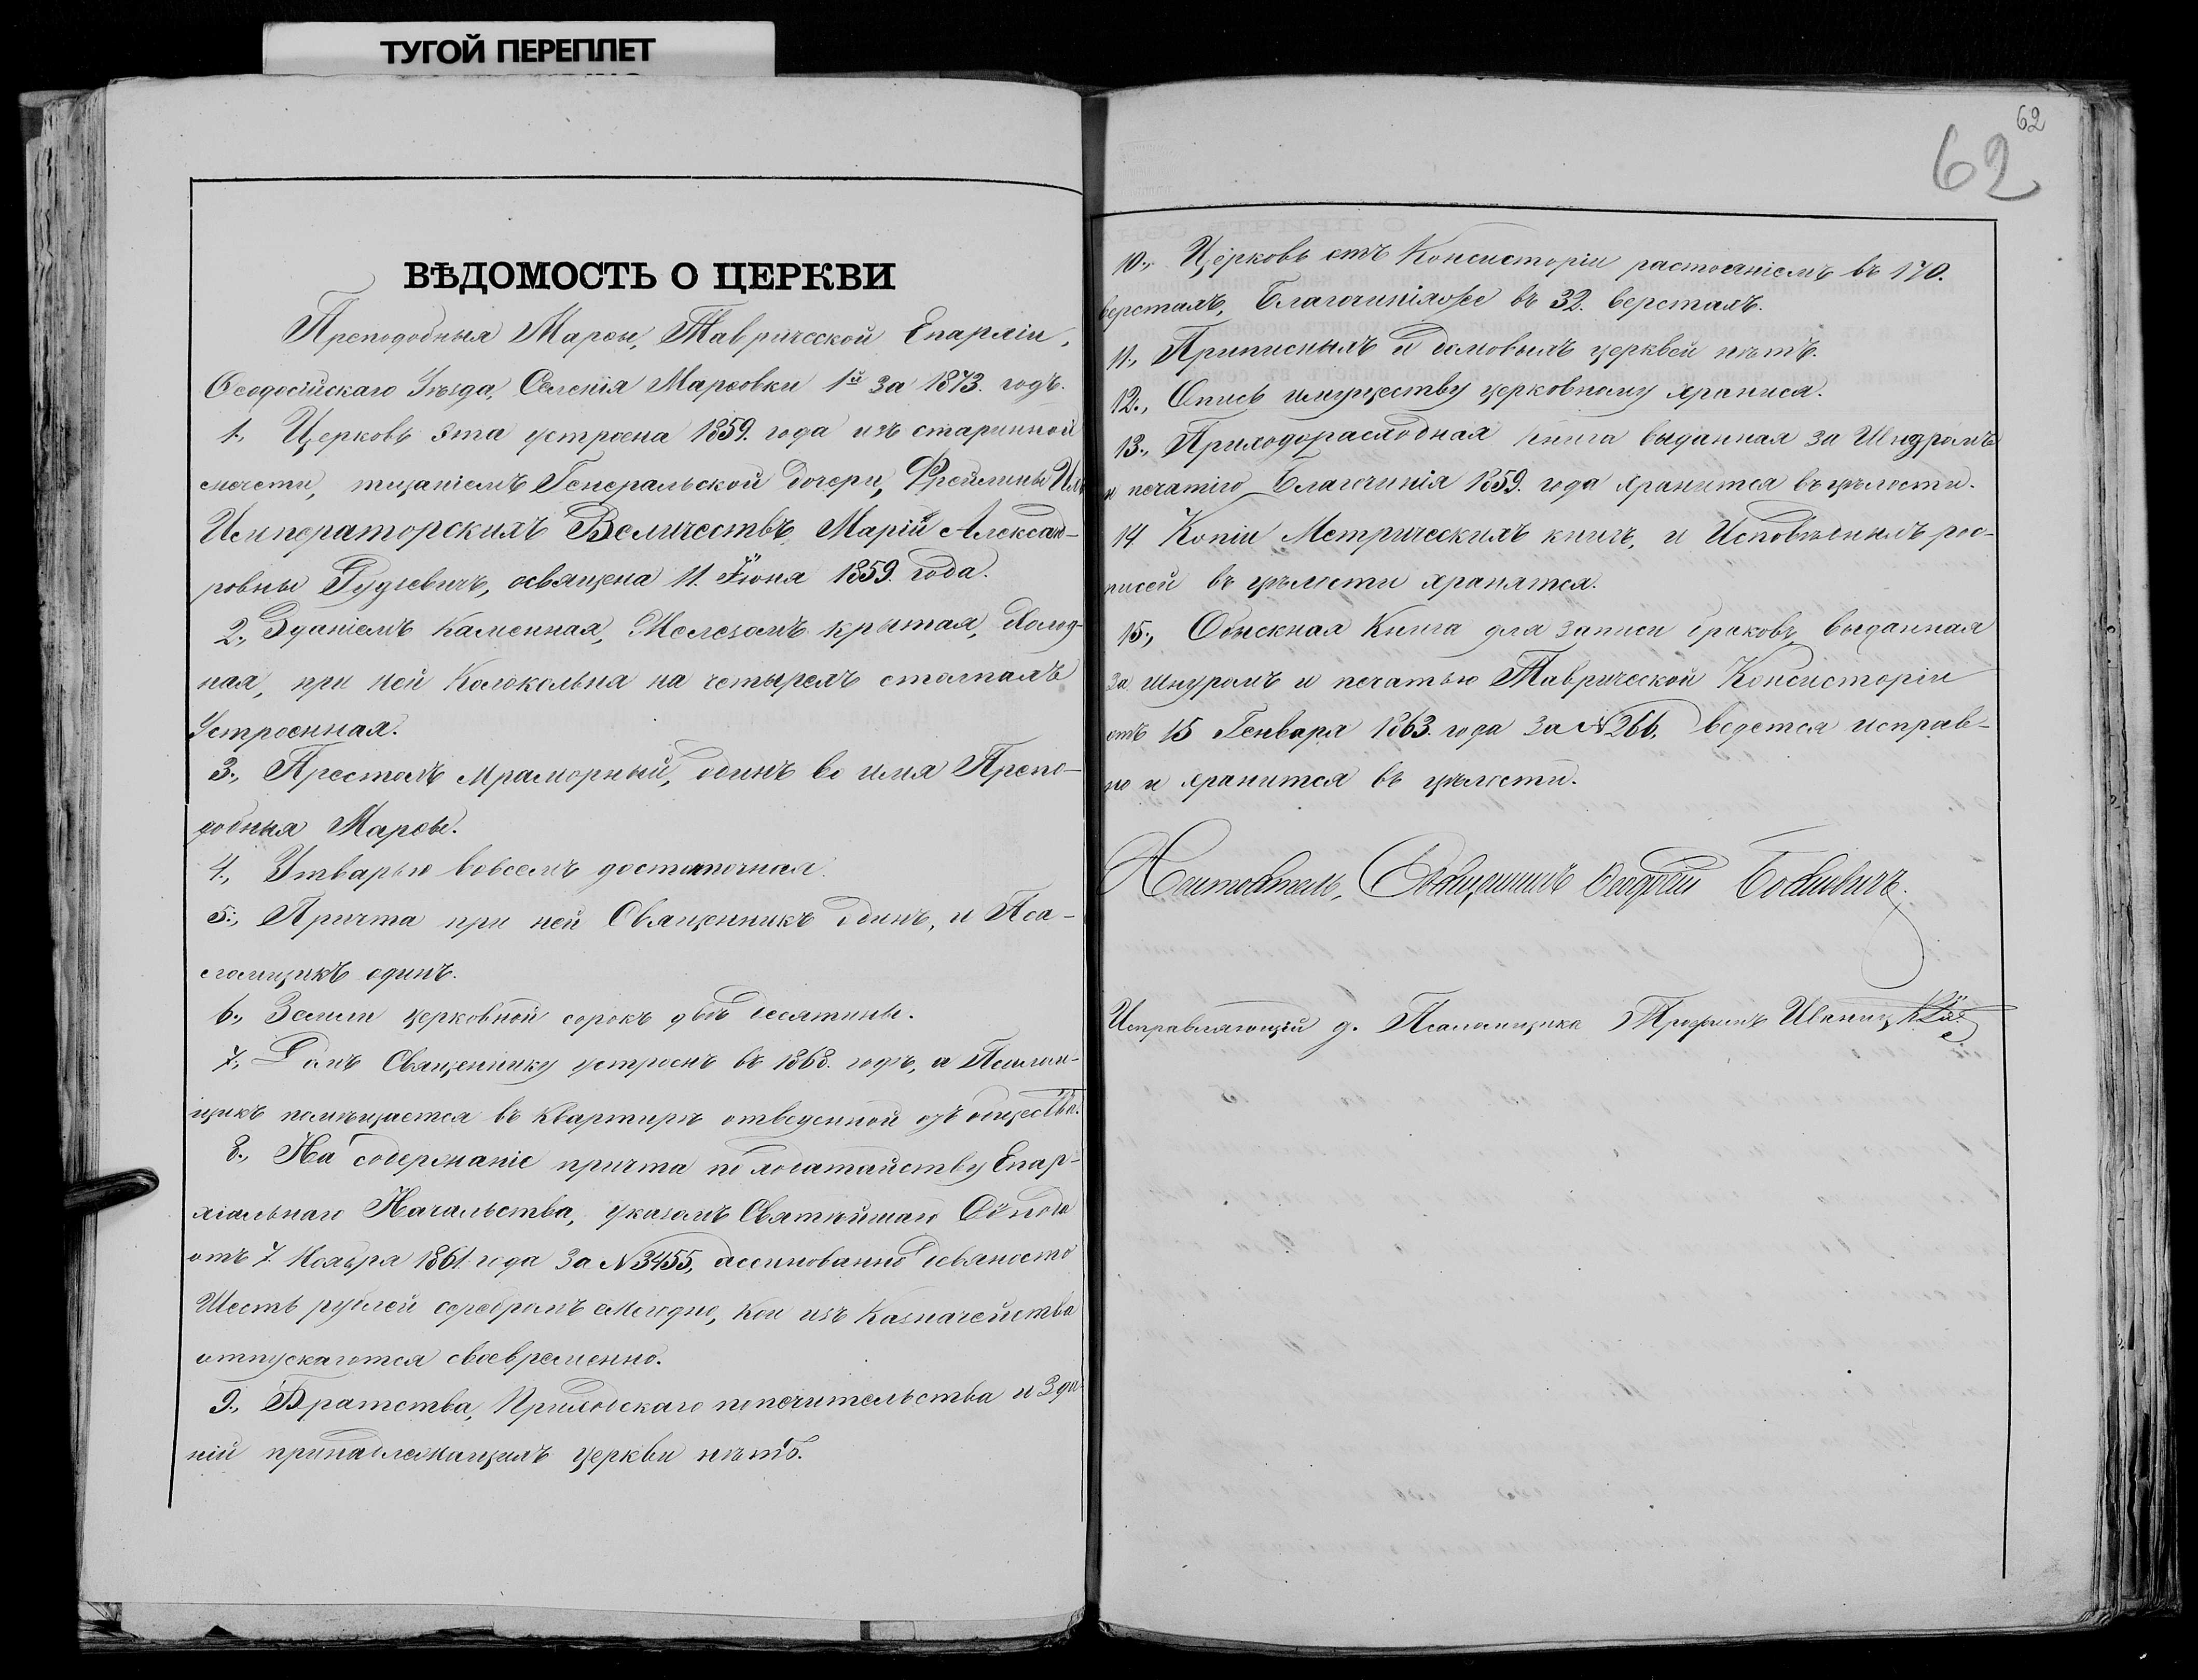 ТУГОЙ ПЕРЕПЛЕТ
ВѢДОМОСТЬ О ЦЕРКВИ
Преподобныя Марѳы, Таврической Епархіи,
Ѳеодосійскаго Уѣзда, Селенія Марѳовки 1й за 1873. годъ.
1., Церковь эта устроена 1859. года изъ старинной
мечети, тщаніемъ Генеральской дочери, Фрейлины Ихъ
Императорскихъ Величествъ, Маріи Александ-
ровны Гудіевичъ, освящена 11. Іюня 1859. года.
2., Зданіемъ каменная, Желѣзомъ крытая, Холод-
ная, при ней Колокольня на четырехъ столпахъ
Устроенная.
3., Престолъ мраморный, одинъ во имя Препо-
добныя Марѳы.
4., Утварью вовсемъ достаточная.
5., Причта при ней Священникъ одинъ, и Пса-
ломщикъ одинъ.
6., Земли церковной сорокъ двѣ десятины.
7., Домъ Священнику устроенъ въ 1868. годѣ, а Псалом-
щикъ помѣщается въ квартирѣ отведенной отъ общества.
8., На содержаніе причта по ходатайству Епар-
хіальнаго Начальства, указомъ Святѣйшаго Сѵнода
отъ 7. Ноября 1861 года за №3455, ассигнованно девяносто
Шесть рублей серебромъ ежегодно, кои изъ Казначейства
отпускаются своевременно.
9., Братства, Приходскаго попечительства и Зда-
ній принадлежащихъ церкви нѣтъ.
62
62
10., Церковь отъ Консисторіи растояніемъ въ 170.
верстахъ, Благочиніяже въ 32. верстахъ.
11., Приписныхъ и домовыхъ церквей нѣтъ.
12., Опись имуществу церковному хранися.
13., Приходорасходная книга выданная за Шнуромъ
и печатію Благочинія 1859. года хранится въ цѣлости.
14 Копіи Метрическихъ книгъ, и Исповѣдныхъ рос-
писей въ цѣлости хранятся.
15., Обыскная Книга для записи браковъ, выданная
за шнуромъ и печатью Таврической Консисторіи
отъ 15 Генваря 1863. года за №266. ведется исправ-
но и хранится въ цѣлости.
Настоятель, Священникъ Ѳеодосій
Исправляющій д. Псаломщика Трофимъ